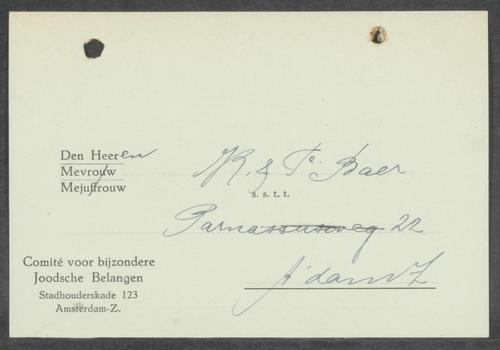 Den Heeren
Mevrouw
Mejuffrouw
K. & Te. Baer
s. s. t. t.
Parnassusweg 22
A'dam Z
Comité voor bijzondere
Joodsche Belangen
Stadhouderskade 123
Amsterdam-Z.